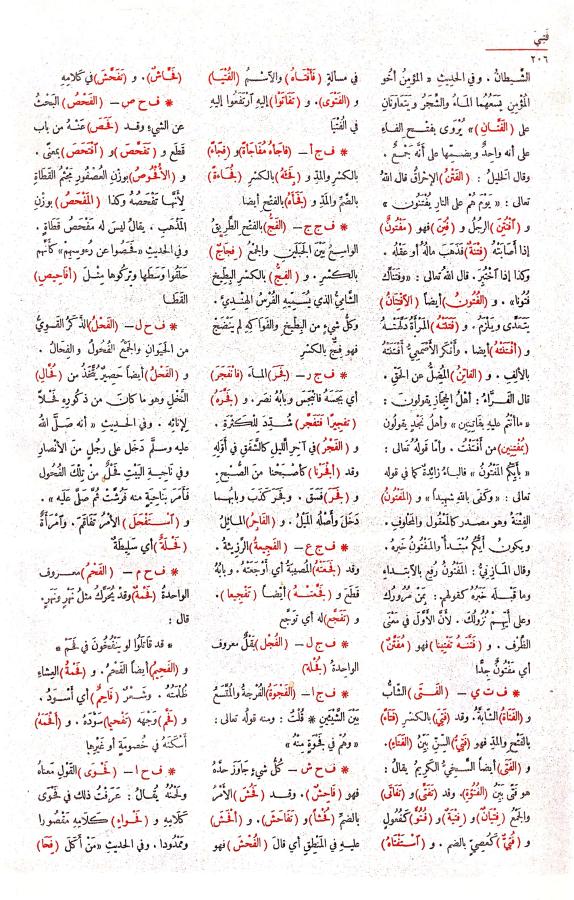 فَتِي
٢٠٦
الشَّيطانُ . وفي الحديثِ « المؤمنُ أخُو
المُؤمنِ يَسَعُهُما المَاءُ والشَّجَرُ ويَتَعاوَنانِ
على (الفَتَّانِ) » يُرْوَى بفَتْحِ الفاءِ
على أنه واحدٌ وبضمِّها على أنَّه جَمْعٌ .
وقال الخَليلُ : (الفَتْنُ) الإِحراقُ قال اللهُ
تعالى : « يَوْمَ هُمْ على النارِ يُفْتَنُون »
و (اُفْتُتِنَ) الرجلُ و (فُتِنَ) فهو (مَفْتُونٌ)
إذا أصابَتْهُ (فِتْنَةٌ) فذَهَب مالُهُ أو عقلُه .
وكذا إذا اُخْتُبِرَ . قال اللهُ تعالى : « وفَتَنَّاكَ
فُتُونًا» . و (الفُتُونُ) أيضا (الاِفْتِتَانُ)
يَتعدَّى ويَلْزَمُ . و (فَتَنَتْه) المرأةُ دَلَّهَتْهُ
و (أَفْتَنَتْهُ) أيضا . وأنكر الأصمَعِيُّ أَفْتَنَتْه
بالأَلِفِ . و (الفاتِنُ) المُضِلُّ عن الحَقِّ .
قال الفَرَّاءُ : أهلُ الحِجازِ يقولون :
«ما أنتم عليه بفاتِنِين» وأهلُ نَجْدٍ يقولون
(بمُفْتِنِين) من أَفْتَنْتُ . وأما قولُه تعالى :
« بأَيِّكُم المَفْتُونُ » فالباءُ زائدةٌ كما في قوله
تعالى : «وكَفَى باللهِ شهيدا» و (المَفْتُونُ)
الفِتْنةُ وهو مصدر كالمعقُولِ والمحلوفِ .
ويكون أيُّكُم مُبْتَدأً والمفتونُ خبرُه .
وقال المازنِيُّ : المفتونُ رُفِع بالاِبتداء
وما قبلَه خبرُه كقولِهم : بمَنْ مُرُورُك
وعلى أيِّهِم نُزُولُك . لأَنَّ الأوَّلَ في مَعْنَى
الظَّرف . و (فَتَّنَه تَفْتِينا) فهو (مُفَتَّنٌ)
أي مَفْتُونٌ جِدًّا
* ف ت ي – (الفَتَى) الشابُّ
و (الفَتاةُ) الشابَّةُ. وقد (فَتِيَ) بالكسْرِ (فَتَاءً)
بالفَتْحِ والمَدِّ فهو (فَتِيُّ) السِنِّ بَيِّنُ (الفَتَاءِ).
و (الفَتَى) أيضاً السَّخِيُّ الكَرِيمُ يقالُ :
هو فَتًى بَيِّنُ (الفُتُوَّةِ). وقد (تَفَتَّى) و (تَفَاتَى)
والجَمْعُ (فِتْيَانٌ) و (فِتْيَةٌ) و (فُتُوٌّ) كفُعُولٍ
و (فُتِيٌّ) كَعُصِيٍّ بالضم . و (اُسْتَفْتَاهُ)
في مسألةٍ (فأَفْتَاهُ) والاسْمُ (الفُتْيَا)
و (الفَتْوَى). و (تَفَاتَوْا) إليه اُرتفَعُوا إليه
في الفُتْيَا
* ف ج أ – (فاجَأَهُ مُفَاجَأَةً) و (فِجَاءً)
بالكَسْرِ والمدِّ و (فَجِئَهُ) بالكَسْرِ (فُجَاءَةً)
بالضَّمِّ والمدِّ و (فَجَأَهُ) بالفَتْحِ أيضا
* ف ج ج – (الفَجُّ) بالفَتْحِ الطَّرِيقُ
الواسِعُ بَيْنَ الجَبَلَينِ والجَمْعُ (فِجَاجٌ)
بالكَسْرِ . و (الفِجُّ) بالكَسْرِ البِطِّيخُ
الشامِيُّ الذي يُسَمِّيهِ الفُرْسُ الهِنْدِيَّ .
وكلُّ شيءٍ من البِطِّيخِ والفَوَاكِهِ لم يَنْضَجْ
فهو فِجٌّ بالكَسْرِ
* ف ج ر – (فَجَر) الماءَ (فاُنفَجَر)
أي بَجَسَهُ فاُنْبَجَس وبابُه نَصَر . و (فَجَّرهُ
تَفْجِيرًا فَتَفَجَّر) شُدِّد لِلْكَثْرة .
و (الفَجْرُ) في آخرِ اللَّيلِ كالشَّفَقِ في أوَّلِهِ
وقد (أَفْجَرْنا) كأصبَحْنا من الصُّبح .
و (فَجَر) فَسَق . وفَجَر كَذَب وبابُهما
دَخَلَ وأصْلُه المَيْلُ . و (الفاجِرُ) المائِلُ
* ف ج ع – (الفَجِيعةُ) الرَّزِيئَةُ .
وقد (فَجَعَتْهُ) المُصيبةُ أي أوْجَعَتْهُ . وبابُه
قَطَع و (فَجَّعَتْهُ) أيضاً (تَفْجِيعا) .
و (تفَجَّع) له أي تَوَجَّع
* ف ج ل – (الفُجْل) بَقْلٌ معروف
الواحدةُ (فُجْلة)
* ف ج ا – (الفَجْوةُ) الفُرْجةُ والمُتَّسَعُ
بَيْنَ الشَّيئَيْنِ * قُلتُ : ومنه قولُه تعالى :
«وهُمْ في فَجْوَةٍ مِنْه »
* ف ح ش – كُلُّ شيءٍ جاوَزَ حدَّه
فهو (فاحِشٌ) . وقد (فَحُشَ) الأمْرُ
بالضمِّ (فُحْشًا) و (تَفَاحَشَ) . و (أَفْحَشَ)
عليه في المَنْطِقِ أي قالَ (الفُحْشَ) فهو
(فَحَّاشٌ). و (تَفَحَّشَ) في كلامِهِ
* ف ح ص – (الفَحْصُ) البَحْثُ
عن الشيءِ وقد (فَحَصَ) عَنْهُ من بابِ
قَطَع و (تَفَحَّصَ) و (اُفْتَحَصَ) بِمعنًى .
و (الأُفْحُوصُ) بوزنِ العُصْفُورِ مَجْثِمُ القَطَاةِ
لأَنَّها تَفْحَصُهُ وكذا (المَفْحَصُ) بوزنِ
المَذْهَبِ . يقالُ ليس له مَفْحَصُ قَطَاةٍ .
وفي الحديثِ «فَحَصُوا عن رُءوسِهِمْ» كأنَّهم
حلَقُوا وسَطَها وترَكُوها مِثلَ (أفَاحِيصِ)
القَطَا
* ف ح ل – (الفَحْلُ) الذَّكَرُ القَوِيُّ
من الحَيَوانِ والجَمْعُ الفُحُولُ والفِحَالُ .
و (الفَحْلُ) أيضاً حَصِيرٌ يُتَّخَذُ من (فُحَّالِ)
النَّخْلِ وهو ما كان من ذكورِهِ فَحْلاً
لإِناثِه . وفي الحديثِ « أنه صلَّى اللهُ
عليه وسلَّم دَخَلَ على رجُلٍ من الأنْصارِ
وفي ناحِيةِ البَيْتِ فَحْلٌ مِنْ تِلْكَ الفُحُولِ
فأَمَر بناحِيَةٍ منه فرُشَّتْ ثُمَّ صَلَّى عليه » .
و (اُسْتَفْحَلَ) الأمْرُ تَفَاقَمَ . واُمْرأةٌ
(فَحْلَةٌ) أي سَلِيطةٌ
* ف ح م – (الفَحْمُ) معروف
الواحدةُ (فَحْمةٌ) وقد يُحَرَّكُ مثلُ نَهْرٍ ونَهَرٍ.
قال :
« قد قاتَلُوا لو يَنْفُخُونَ في فَحَمْ »
و (الفَحِيمُ) أيضاً الفَحْمُ . و (فَحْمةُ) العِشاءِ
ظُلْمَتُه . وشَعْرٌ (فاحِمٌ) أي أَسْوَدُ .
و (فَحَّم) وَجْهَه (تَفْحِيما) سَوَّدَه . و (أَفْحَمَه)
أَسْكَتَهُ في خُصومةٍ أو غيرِها
* ف ح ا – (فَحْوَى) القَوْلِ معناهُ
ولَحْنُه يُقالُ : عَرَفْتُ ذلك في فَحْوَى
كلامِهِ و (فَحْواءِ) كلامِه مقصُورا
وممدُودا . وفي الحديثِ «مَنْ أَكَلَ (فِحَا)